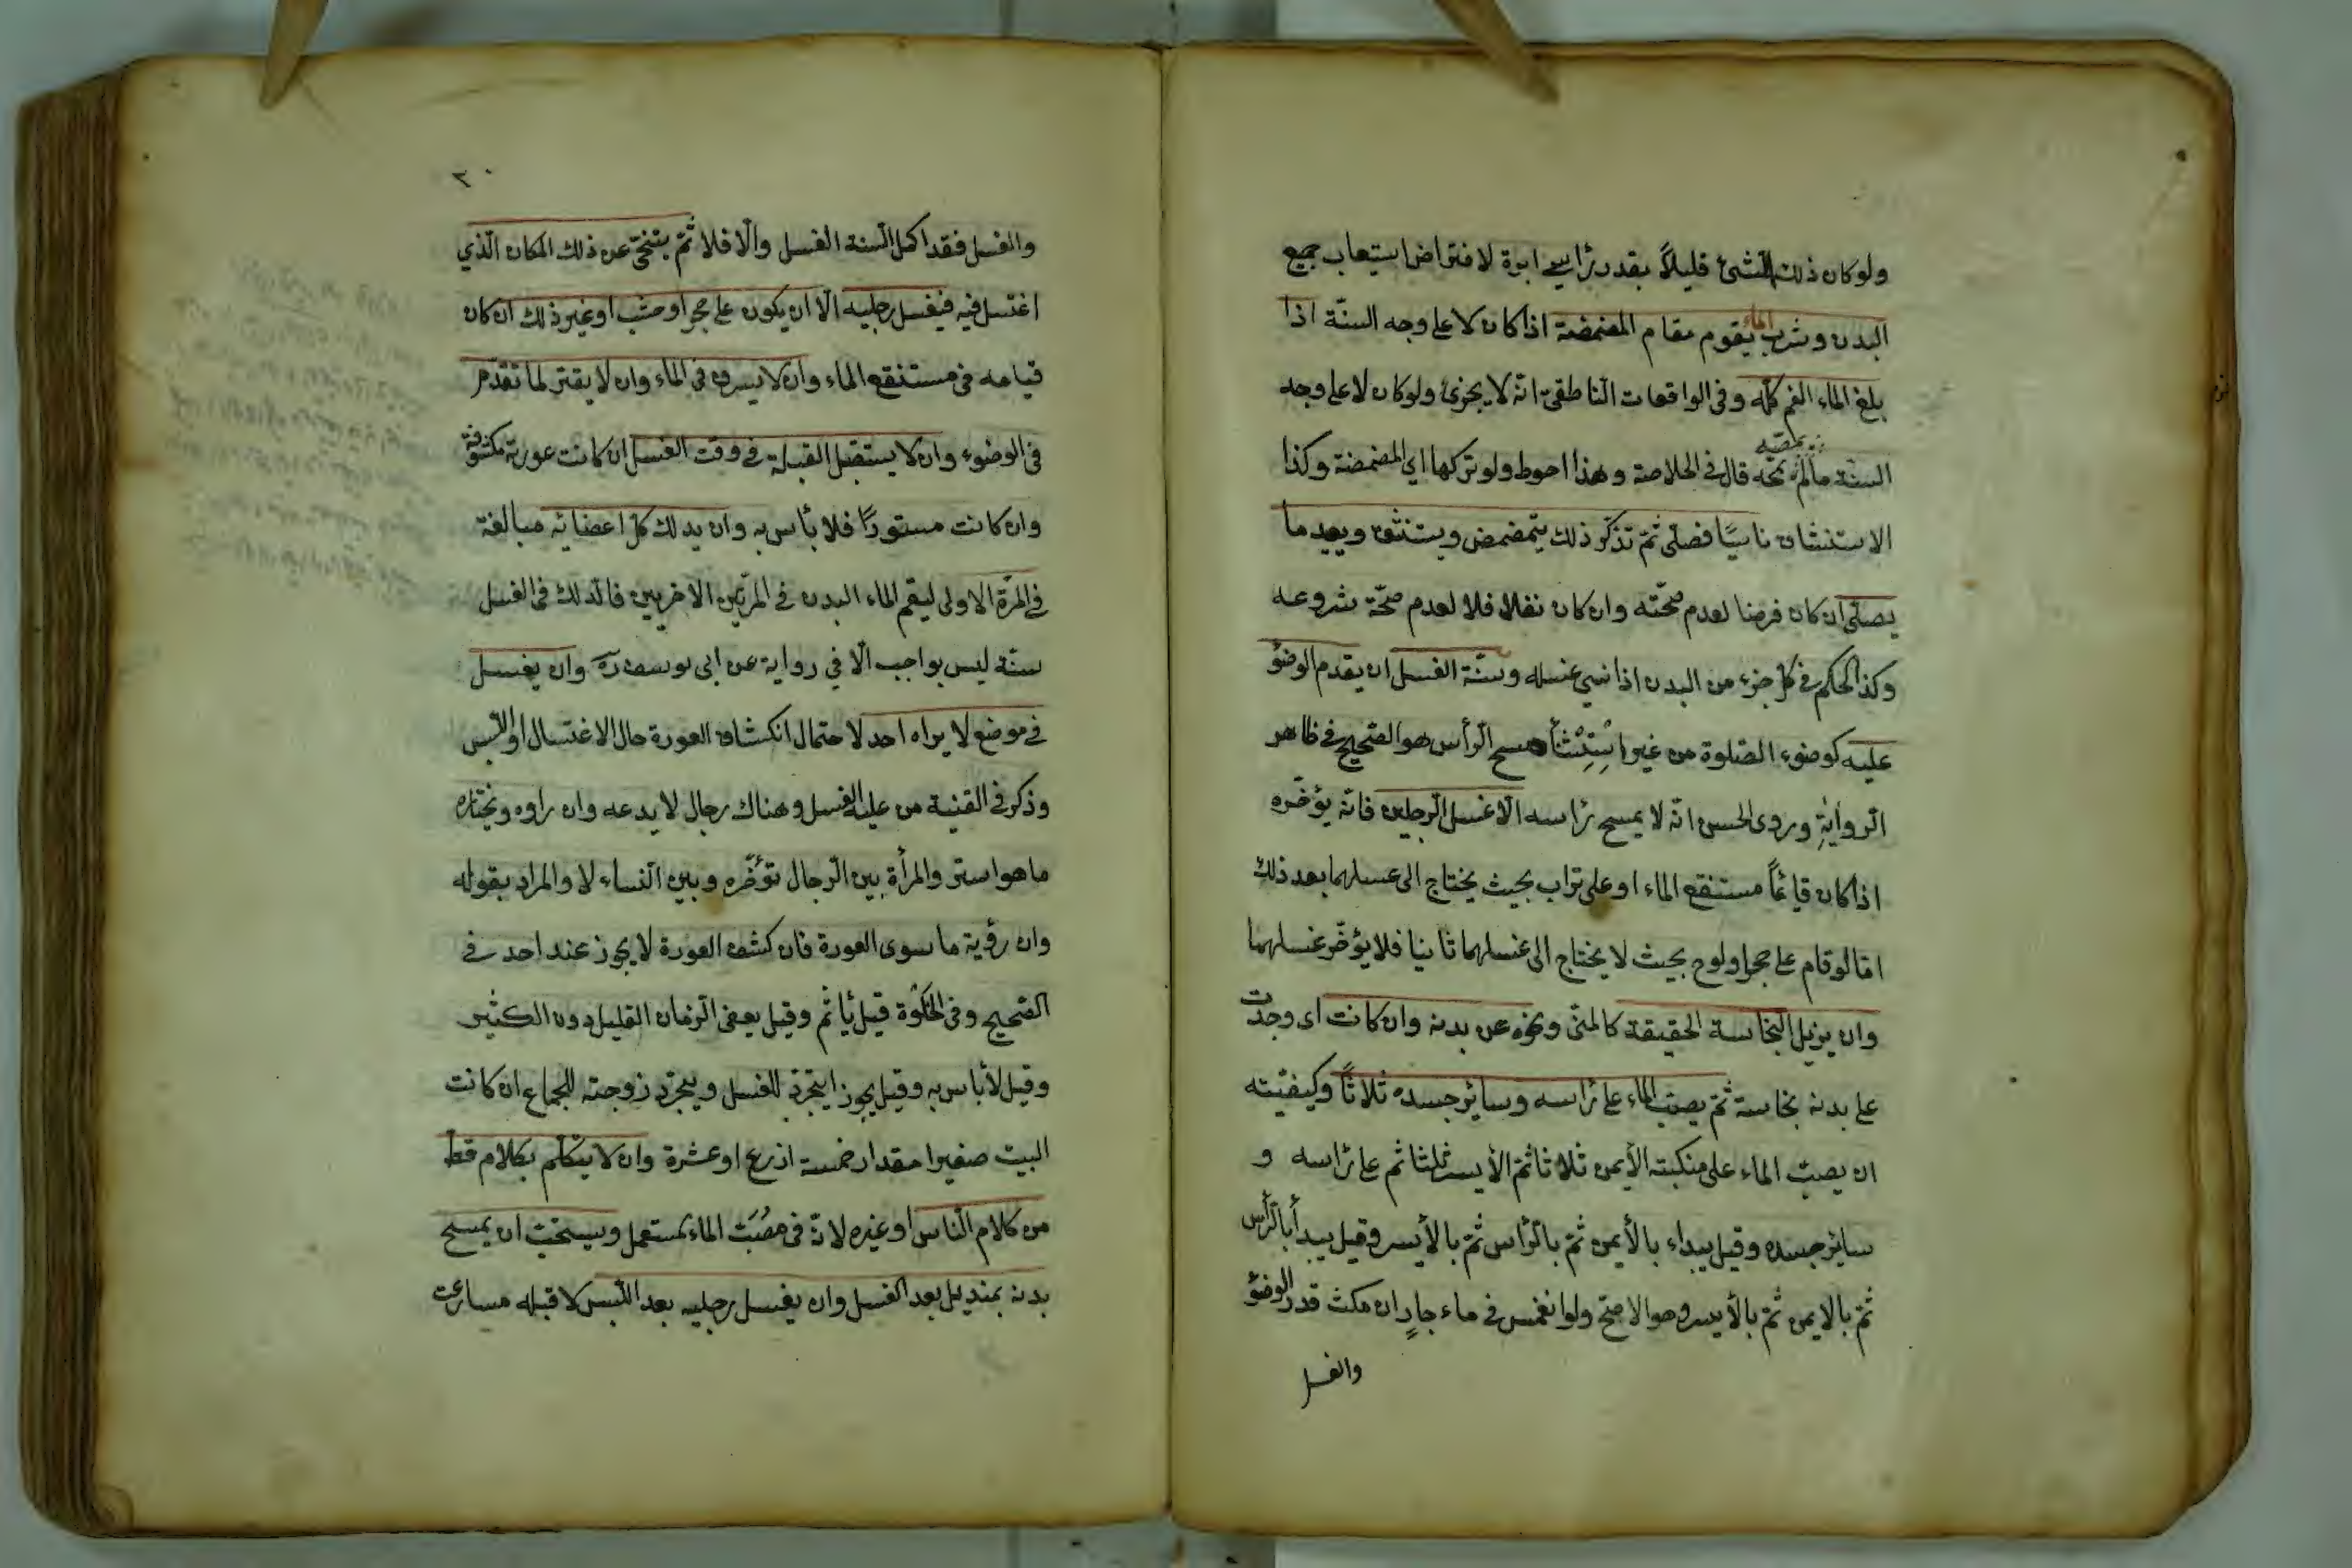 ولو كان ذلك الشئ قليلاً بقدر رأسي ابرة لافتراض استيعاب جميع
البدن وشرب الماء يقوم مقام المضمضة اذا كان لا على وجه السنّة اذا
بلغ الماء الفم كلّه وفى الواقعات الناطقىّ انّه لا يجزئ ولو كان لا على وجه
يمصّه
السنة ما لم يمجّه قال فى الخلاصة وهذا احوط ولو تركها اي المضمضة وكذا
الاستنشاق ناسيًا فصلّى ثمّ تذكّر ذلك يتمضمض ويستنثق ويعيد ما
يصلّى ان كان فرضا لعدم صحّته وان كان نفلا فلا لعدم صحّة شروعه
وكذا الحكم فى كل جزء من البدن اذا نسى غسله وسنّة الغسل ان يقدم الوضؤ
عليه كوضوء الصّلوة من غير استثناء مسح الرأس هو الصّحيح فى ظاهر
الرواية وروى الحسن انّه لا يمسح رأسه الّا غسل الرجلين فانّه يؤخّره
اذا كان قائمًا مستنقع الماء او على تراب بحيث يحتاج الى غسلهما بعد ذلك
امّا لو قام على حجر او لوح بحيث لا يحتاج الى غسلهما ثانيا فلا يؤخّر غسلهما
وان يزيل النجاسة الحقيقة كالمنىّ ونحوه عن بدنه وان كانت اى وجدت
على بدنه نجاسة ثمّ يصبّ الماء على رأسه وسائر جسده ثلاثاً وكيفيّته
ان يصبّ الماء على منكبته الأيمن ثلاثا ثمّ الأيسر ثلثا ثم على رأسه و
سائر جسده وقيل يبداء بالأيمن ثمّ بالرأس ثمّ بالأيسر وقيل يبدأ بالرأس
ثمّ بالايمن ثمّ بالأيسر وهو الاصحّ ولو انغمس فى ماء جارٍ ان مكث قدر الوضؤ
والغسل
٣٠
والغسل فقد اكمل السنة الغسل والّا فلا ثمّ يتنحّى عن ذلك المكان الّذي
اغتسل فيه فيغسل رجليه الّا ان يكون على حجر او خشب او غير ذلك ان كان
قيامه فى مستنقع الماء وان لا يسرف فى الماء وان لا يقتر لما تقدّم
فى الوضوء وان لا يستقبل القبلة فى وقت الغسل ان كانت عورته مكشوفة
وان كانت مستورًا فلا بأس به وان يدلك كل اعضائه مبالغة
فى المرّة الاولى ليقم الماء البدن فى المرّتين الاخريين فالدلك فى الغسل
سنّة ليس بواجب الّا في رواية عن ابى يوسف رح وان يغسل
فى موضع لا يراه احد لاحتمال انكشاف العورة حال الاغتسال او اللّبس
وذكر فى القنية من عليه الغسل وهناك رجال لا يدعه وان راوه ويختاره
ما هو استر والمرأة بين الرجال تؤخّره وبين النساء لا والمراد بقوله
وان رؤية ما سوى العورة فان كشف العورة لا يجوز عند احد فى
الصّحيح وفى الخلوة قيل يأثم وقيل يعفى الزمان القليل دون الكثير
وقيل لا بأس به وقيل يجوز ايتجرّد للغسل ويتجرّد زوجته للجماع ان كانت
البيت صغيرا مقدار خمسة اذرع او عشرة وان لا يتكلّم بكلام قطّ
من كلام الناس او غيره لانّه فى مصبّت الماء المستعمل ويستحبّ ان يمسح
بدنه بمنديل بعد الغسل وان يغسل رجليه بعد اللّبس لا قبله مسارعت